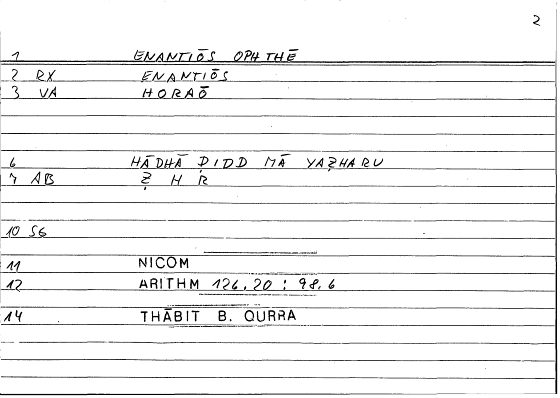 2
1 ENANTIŌS OPHTHĒ
2 RX ENANTIŌS
3 VA HORAŌ
6 HĀDHĀ ḌIDD MĀ YAẒHARU
7 AB Ẓ H R
10 SG
11 NICOM
12 ARITHM 126.20 : 98.6
14 THĀBIT B. QURRA